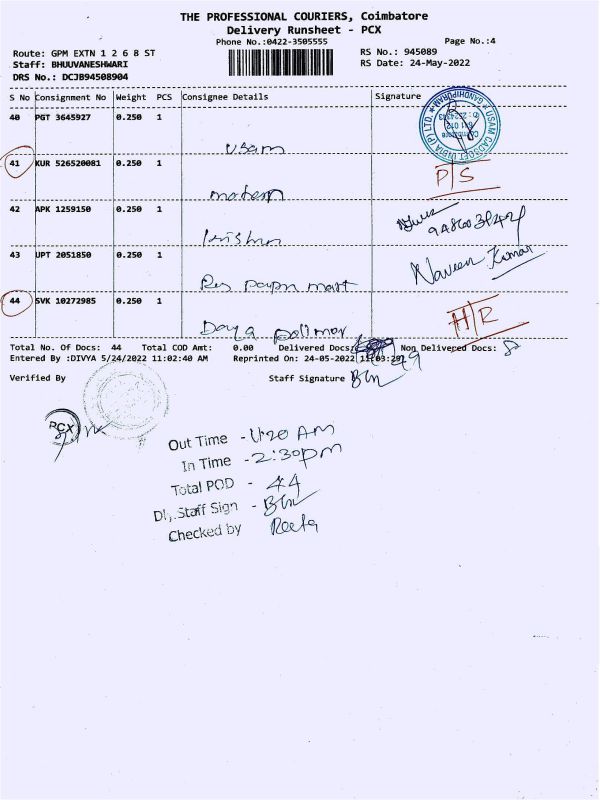 THE PROFESSIONAL COURIERS, Coimbatore
Delivery Runsheet - PCX
Phone No.:0422-3505555
Page No.:4
Route: GPM EXTN 1 2 6 8 ST
RS No.: 945089
Staff: BHUUVANESHWARI
RS Date: 24-May-2022
DRS No.: DCJB94508904
S No Consignment No Weight PCS Consignee Details Signature
40 PGT 3645927 0.250 1
usam
41 KUR 526520081 0.250 1 P/S
mohan
42 APK 1259150 0.250 1
Krishna
43 UPT 2051850 0.250 1 Naveen Kumar
44 SVK 10272985 0.250 1 H/R
Daya
Total No. Of Docs: 44 Total COD Amt: 0.00 Delivered Docs: Non Delivered Docs: 8
Entered By :DIVYA 5/24/2022 11:02:40 AM Reprinted On: 24-05-2022
Verified By Staff Signature
PCX
Out Time - 11:20 AM
In Time - 2:30pm
Total POD - 44
Staff Sign -
Checked by Reeta